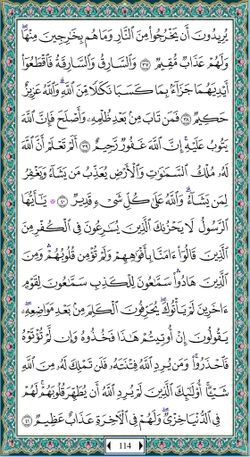 يُرِيدُونَ أَن يَخْرُجُوا۟ مِنَ ٱلنَّارِ وَمَا هُم بِخَٰرِجِينَ مِنْهَا ۖ
وَلَهُمْ عَذَابٌ مُّقِيمٌ ٣٧ وَٱلسَّارِقُ وَٱلسَّارِقَةُ فَٱقْطَعُوٓا۟
أَيْدِيَهُمَا جَزَآءًۢ بِمَا كَسَبَا نَكَٰلًا مِّنَ ٱللَّهِ ۗ وَٱللَّهُ عَزِيزٌ
حَكِيمٌ ٣٨ فَمَن تَابَ مِنۢ بَعْدِ ظُلْمِهِۦ وَأَصْلَحَ فَإِنَّ ٱللَّهَ
يَتُوبُ عَلَيْهِ ۗ إِنَّ ٱللَّهَ غَفُورٌ رَّحِيمٌ ٣٩ أَلَمْ تَعْلَمْ أَنَّ ٱللَّهَ
لَهُۥ مُلْكُ ٱلسَّمَٰوَٰتِ وَٱلْأَرْضِ يُعَذِّبُ مَن يَشَآءُ وَيَغْفِرُ
لِمَن يَشَآءُ ۗ وَٱللَّهُ عَلَىٰ كُلِّ شَىْءٍ قَدِيرٌ ٤٠ يَٰٓأَيُّهَا
ٱلرَّسُولُ لَا يَحْزُنكَ ٱلَّذِينَ يُسَٰرِعُونَ فِى ٱلْكُفْرِ مِنَ
ٱلَّذِينَ قَالُوٓا۟ ءَامَنَّا بِأَفْوَٰهِهِمْ وَلَمْ تُؤْمِن قُلُوبُهُمْ ۛ وَمِنَ
ٱلَّذِينَ هَادُوا۟ ۛ سَمَّٰعُونَ لِلْكَذِبِ سَمَّٰعُونَ لِقَوْمٍ
ءَاخَرِينَ لَمْ يَأْتُوكَ ۖ يُحَرِّفُونَ ٱلْكَلِمَ مِنۢ بَعْدِ مَوَاضِعِهِۦ ۖ
يَقُولُونَ إِنْ أُوتِيتُمْ هَٰذَا فَخُذُوهُ وَإِن لَّمْ تُؤْتَوْهُ
فَٱحْذَرُوا۟ ۚ وَمَن يُرِدِ ٱللَّهُ فِتْنَتَهُۥ فَلَن تَمْلِكَ لَهُۥ مِنَ ٱللَّهِ
شَيْـًٔا ۚ أُو۟لَٰٓئِكَ ٱلَّذِينَ لَمْ يُرِدِ ٱللَّهُ أَن يُطَهِّرَ قُلُوبَهُمْ ۚ لَهُمْ
فِى ٱلدُّنْيَا خِزْىٌ ۖ وَلَهُمْ فِى ٱلْءَاخِرَةِ عَذَابٌ عَظِيمٌ ٤١
114